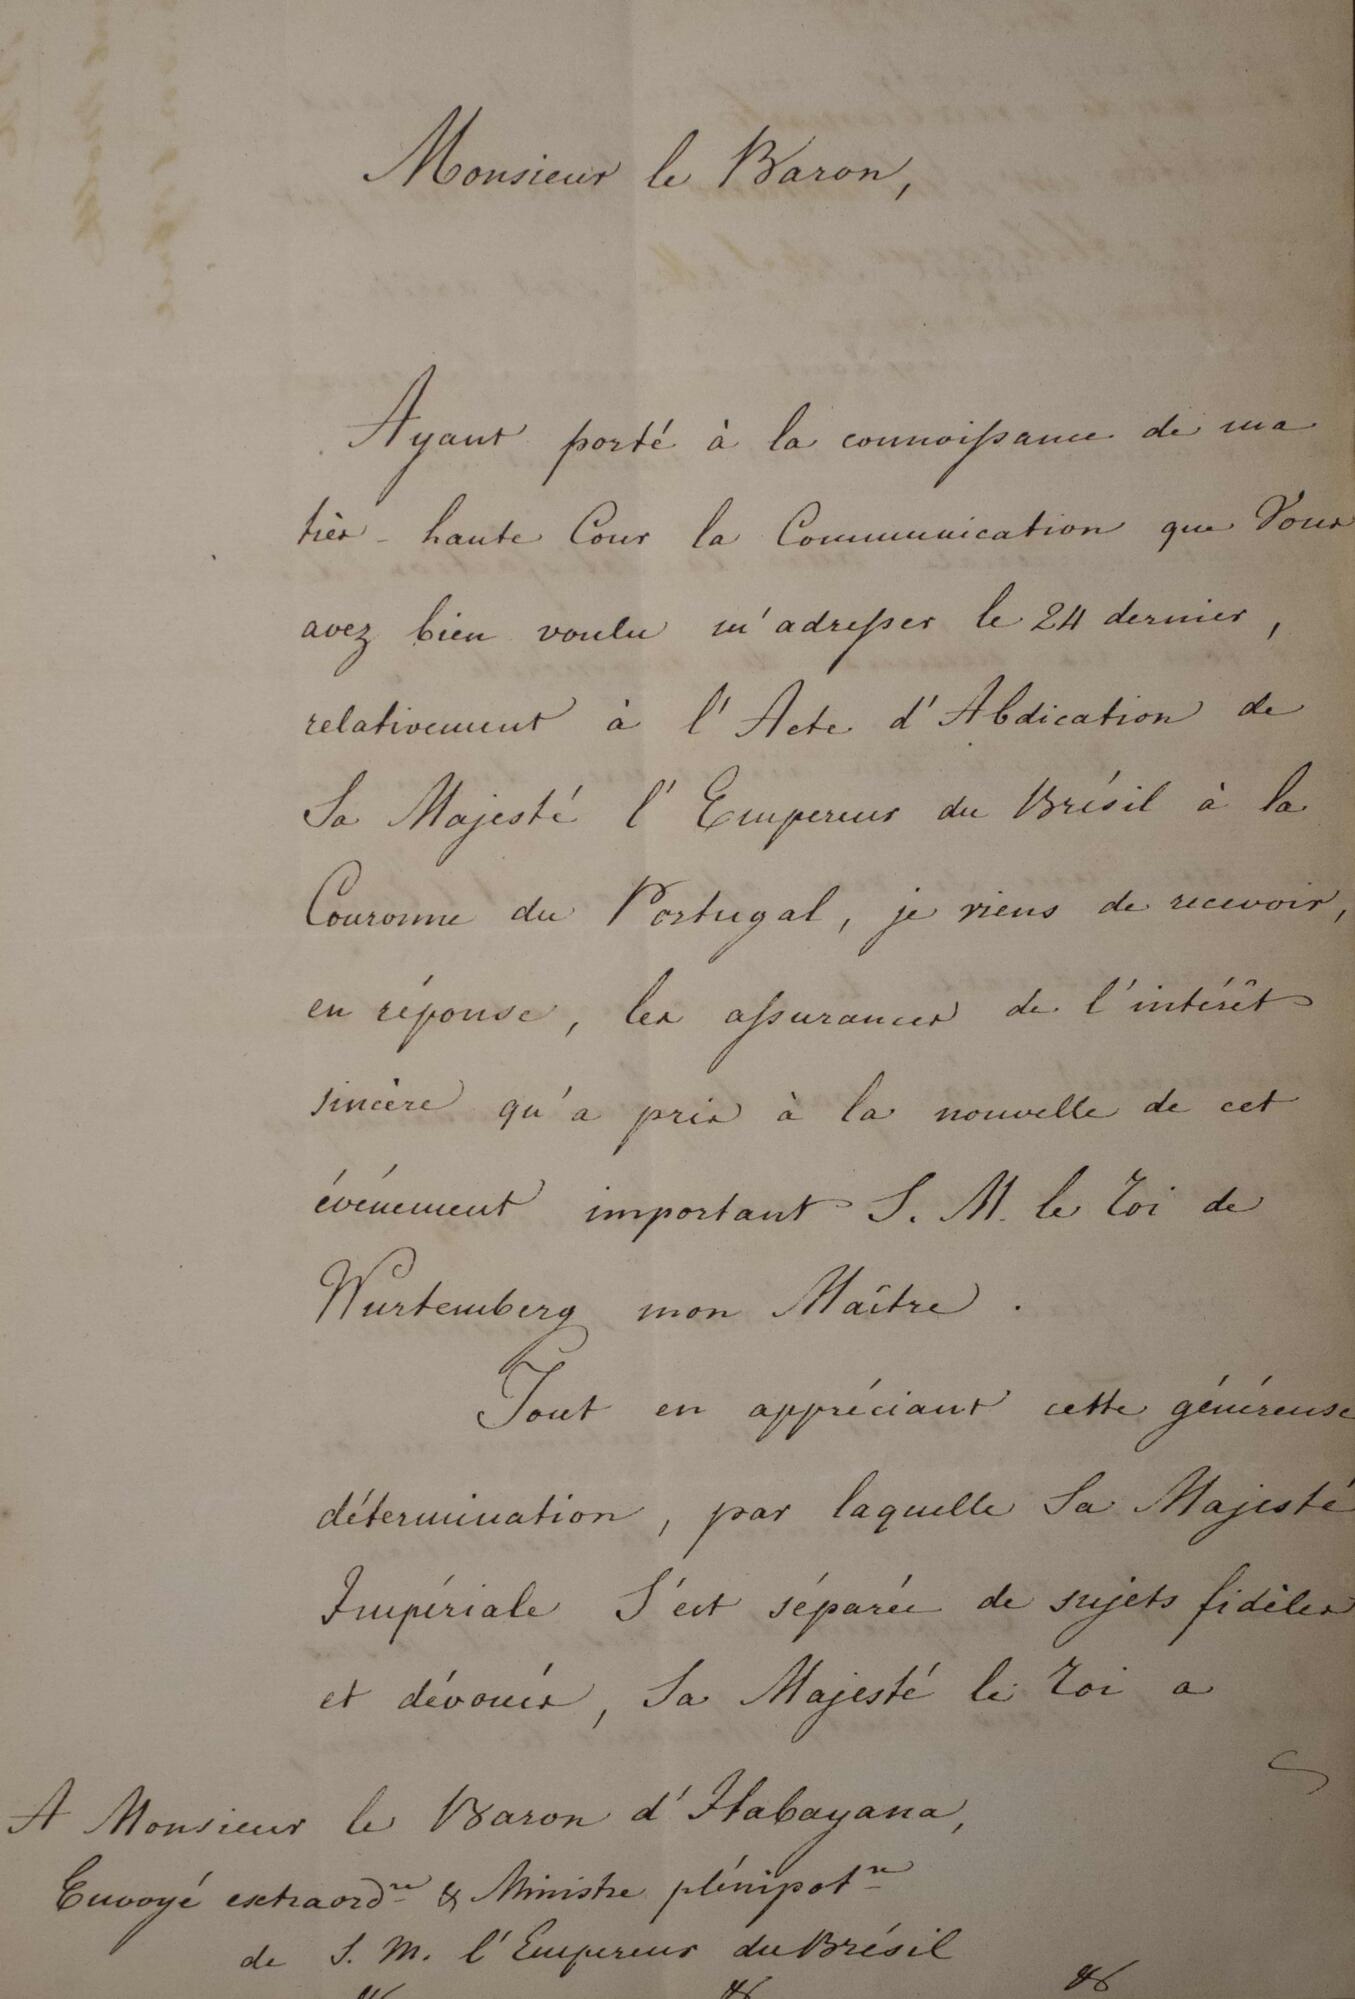 Monsieur le Baron,
Ayant porté à la connoissance de ma
très-haute Cour la Communication que Vous
avez bien voulu m'adresser le 24 dernier,
relativement à l'Acte d'Abdication de
Sa Majesté l'Empereur du Brésil à la
Couronne du Portugal, je viens de recevoir,
en réponse, les assurances de l'intérêt
sincère qu'a pris à la nouvelle de cet
événement important S. M. le roi de
Wurtemberg mon Maître.
Tout en appréciant cette généreuse
détermination, par laquelle Sa Majesté
Impériale S'est séparée de sujets fidèles
et dévoués, Sa Majesté le roi a
A Monsieur le Baron d'Itabayana,
Envoyé extraordre & Ministre plénipotre
de S. M. l'Empereur du Brésil
&c &c &c